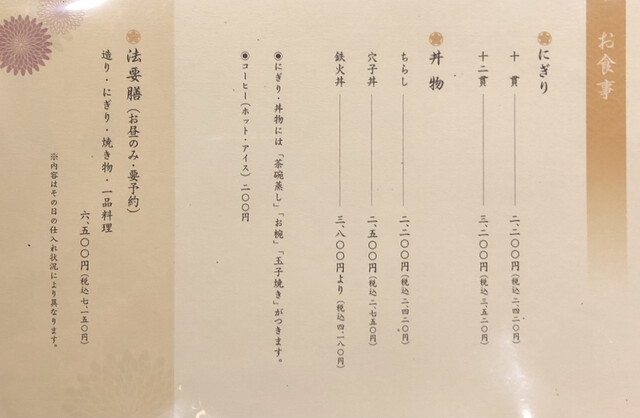 お食事
にぎり
十 貫 二、二〇〇円(税込二、四二〇円)
十二貫 三、二〇〇円(税込三、五二〇円)
丼物
ちらし 二、二〇〇円(税込二、四二〇円)
穴子丼 二、五〇〇円(税込二、七五〇円)
鉄火丼 三、八〇〇円より(税込四、一八〇円)
◉にぎり・丼物には「茶碗蒸し」「お椀」「玉子焼き」がつきます。
◉コーヒー(ホット・アイス)二〇〇円
法要膳(お昼のみ・要予約)
造り・にぎり・焼き物・一品料理
六、五〇〇円(税込七、一五〇円)
※内容はその日の仕入れ状況により異なります。